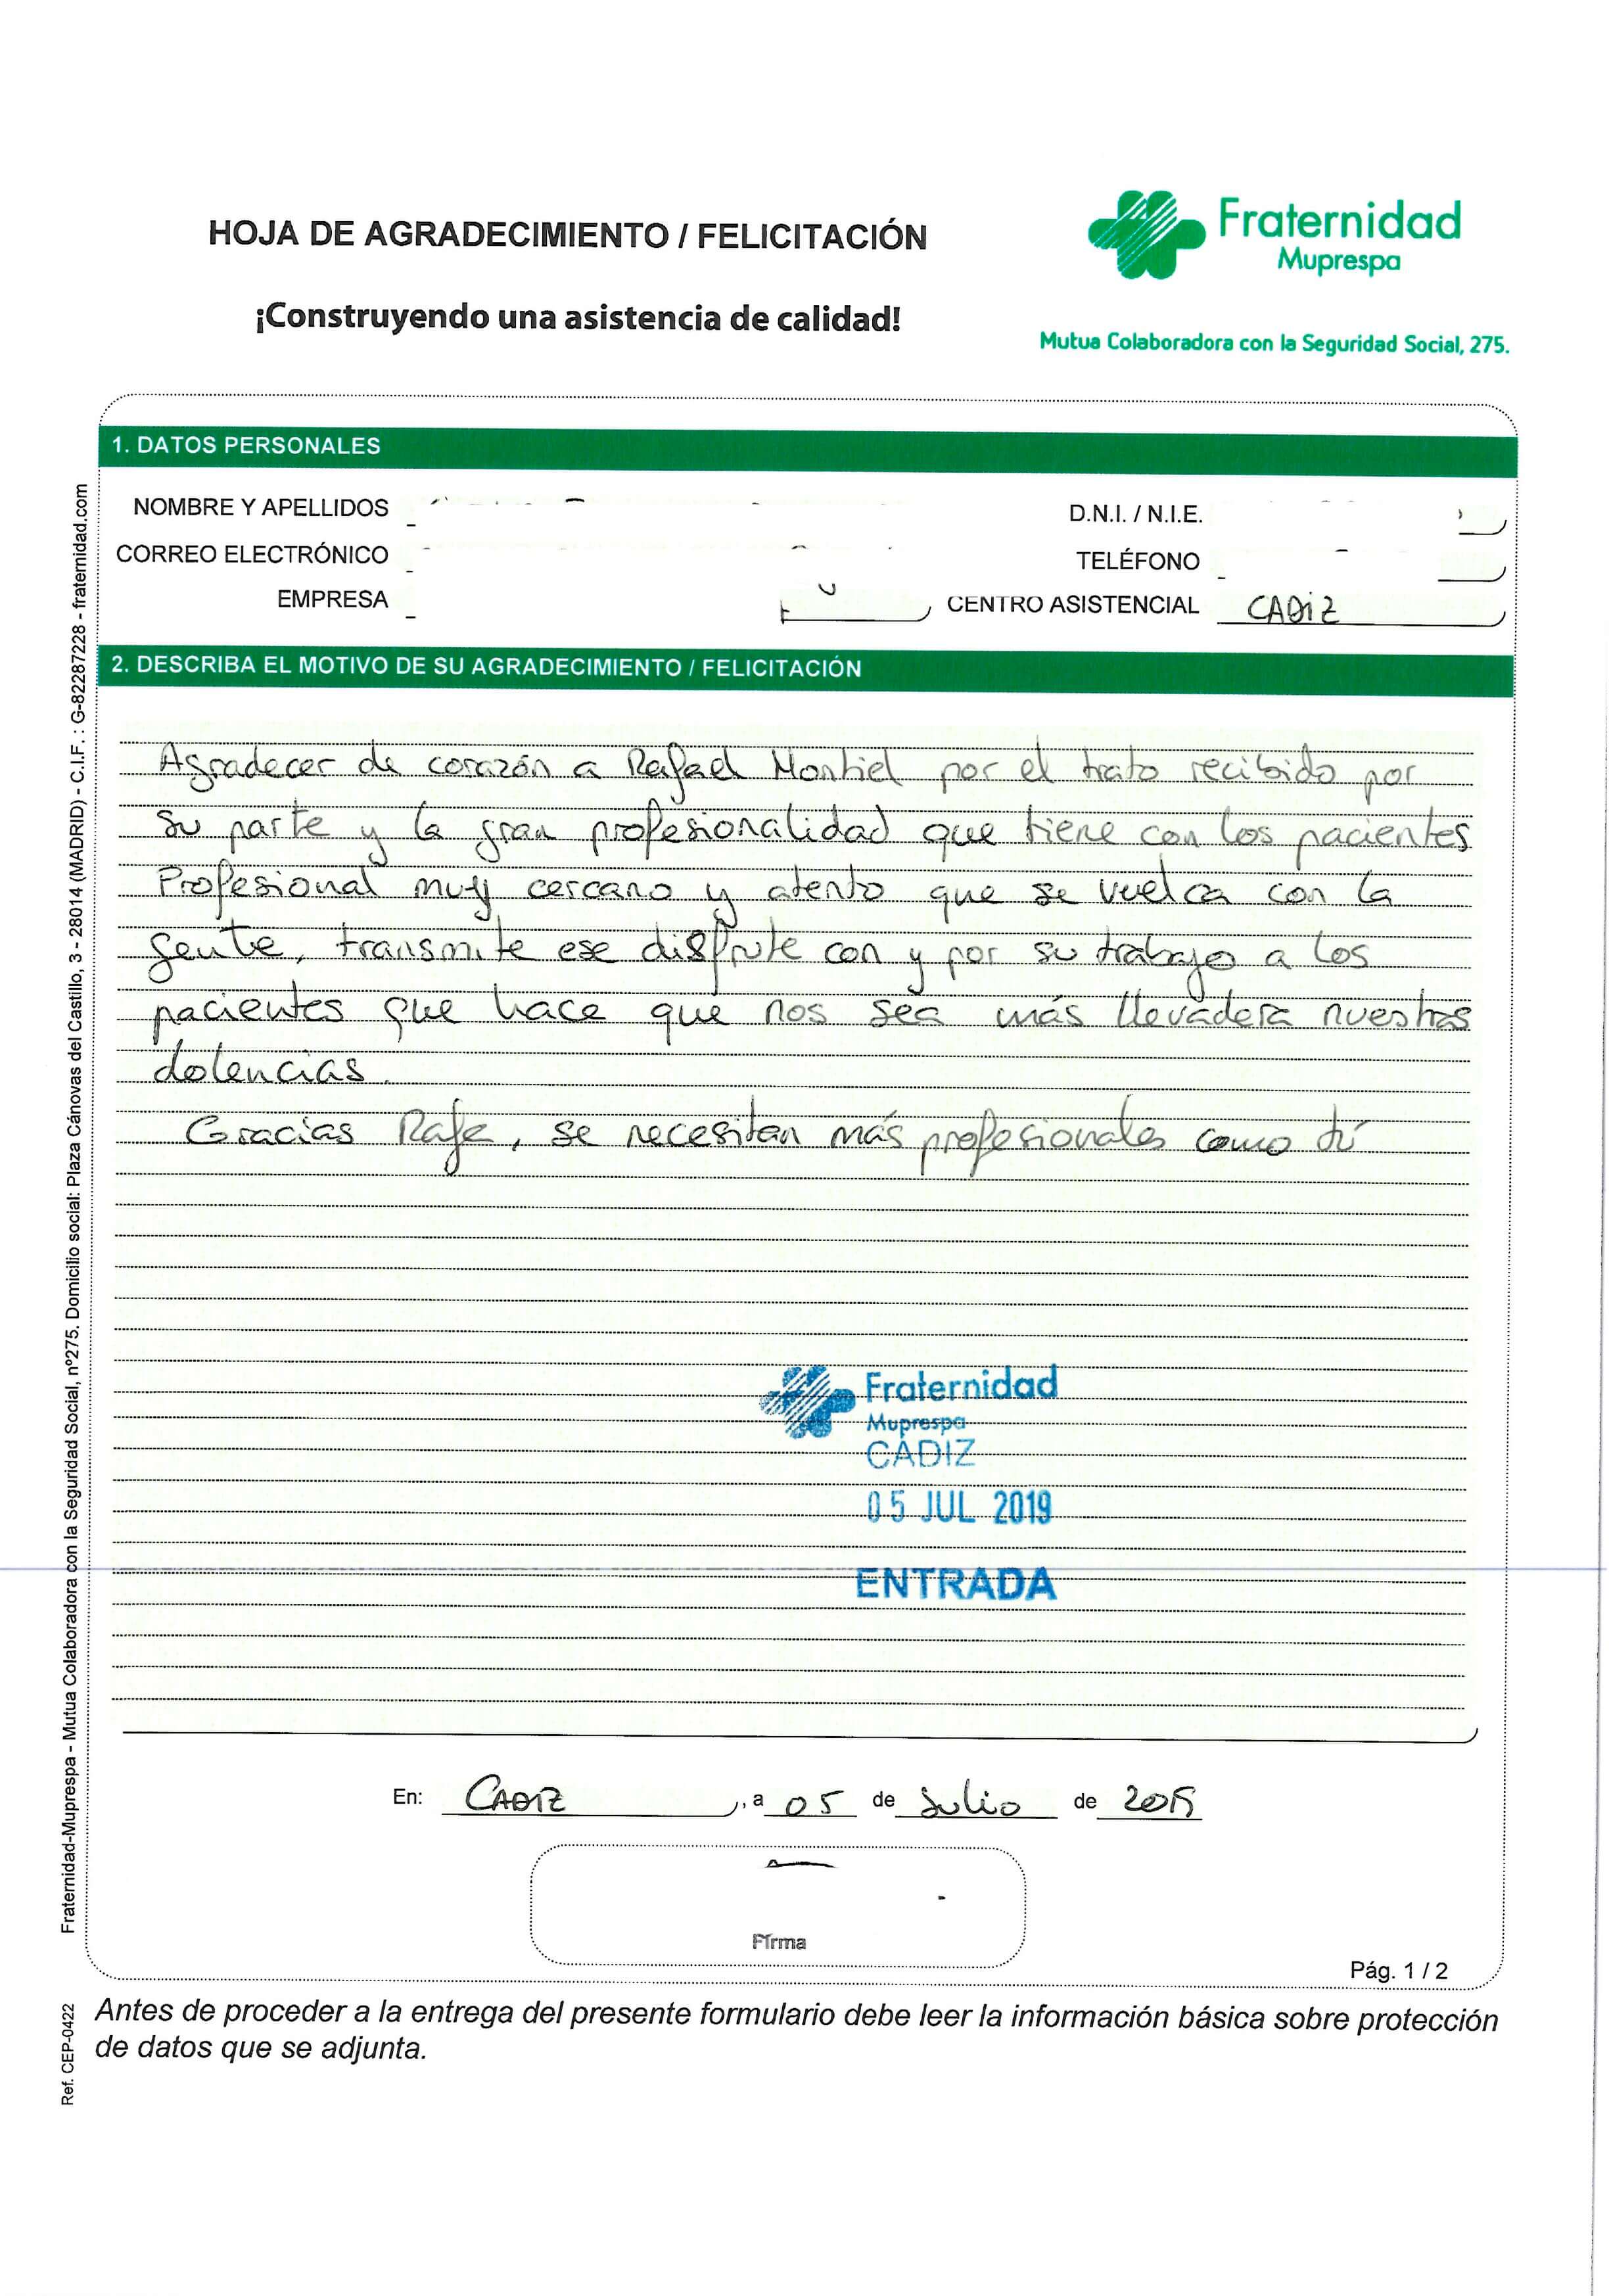 HOJA DE AGRADECIMIENTO / FELICITACIÓN
¡Construyendo una asistencia de calidad!
Fraternidad
Muprespa
Mutua Colaboradora con la Seguridad Social, 275.
1. DATOS PERSONALES
NOMBRE Y APELLIDOS
D.N.I. / N.I.E.
CORREO ELECTRÓNICO
TELÉFONO
EMPRESA
CENTRO ASISTENCIAL CADIZ
2. DESCRIBA EL MOTIVO DE SU AGRADECIMIENTO / FELICITACIÓN
Agradecer de corazón a Rafael Montiel por el trato recibido por
su parte y la gran profesionalidad que tiene con los pacientes
Profesional muy cercano y atento que se vuelca con la
gente, transmite ese disfrute con y por su trabajo a los
pacientes que hace que nos sea más llevadera nuestras
dolencias.
Gracias Rafa, se necesitan más profesionales como tú
Fraternidad
Muprespa
CADIZ
05 JUL 2019
ENTRADA
En: CADIZ, a 05 de Julio de 2019
Firma
Pág. 1 / 2
Antes de proceder a la entrega del presente formulario debe leer la información básica sobre protección
de datos que se adjunta.
Fraternidad-Muprespa - Mutua Colaboradora con la Seguridad Social, nº275. Domicilio social: Plaza Cánovas del Castillo, 3 - 28014 (MADRID) - C.I.F. : G-82287228 - fraternidad.com
Ref. CEP-0422